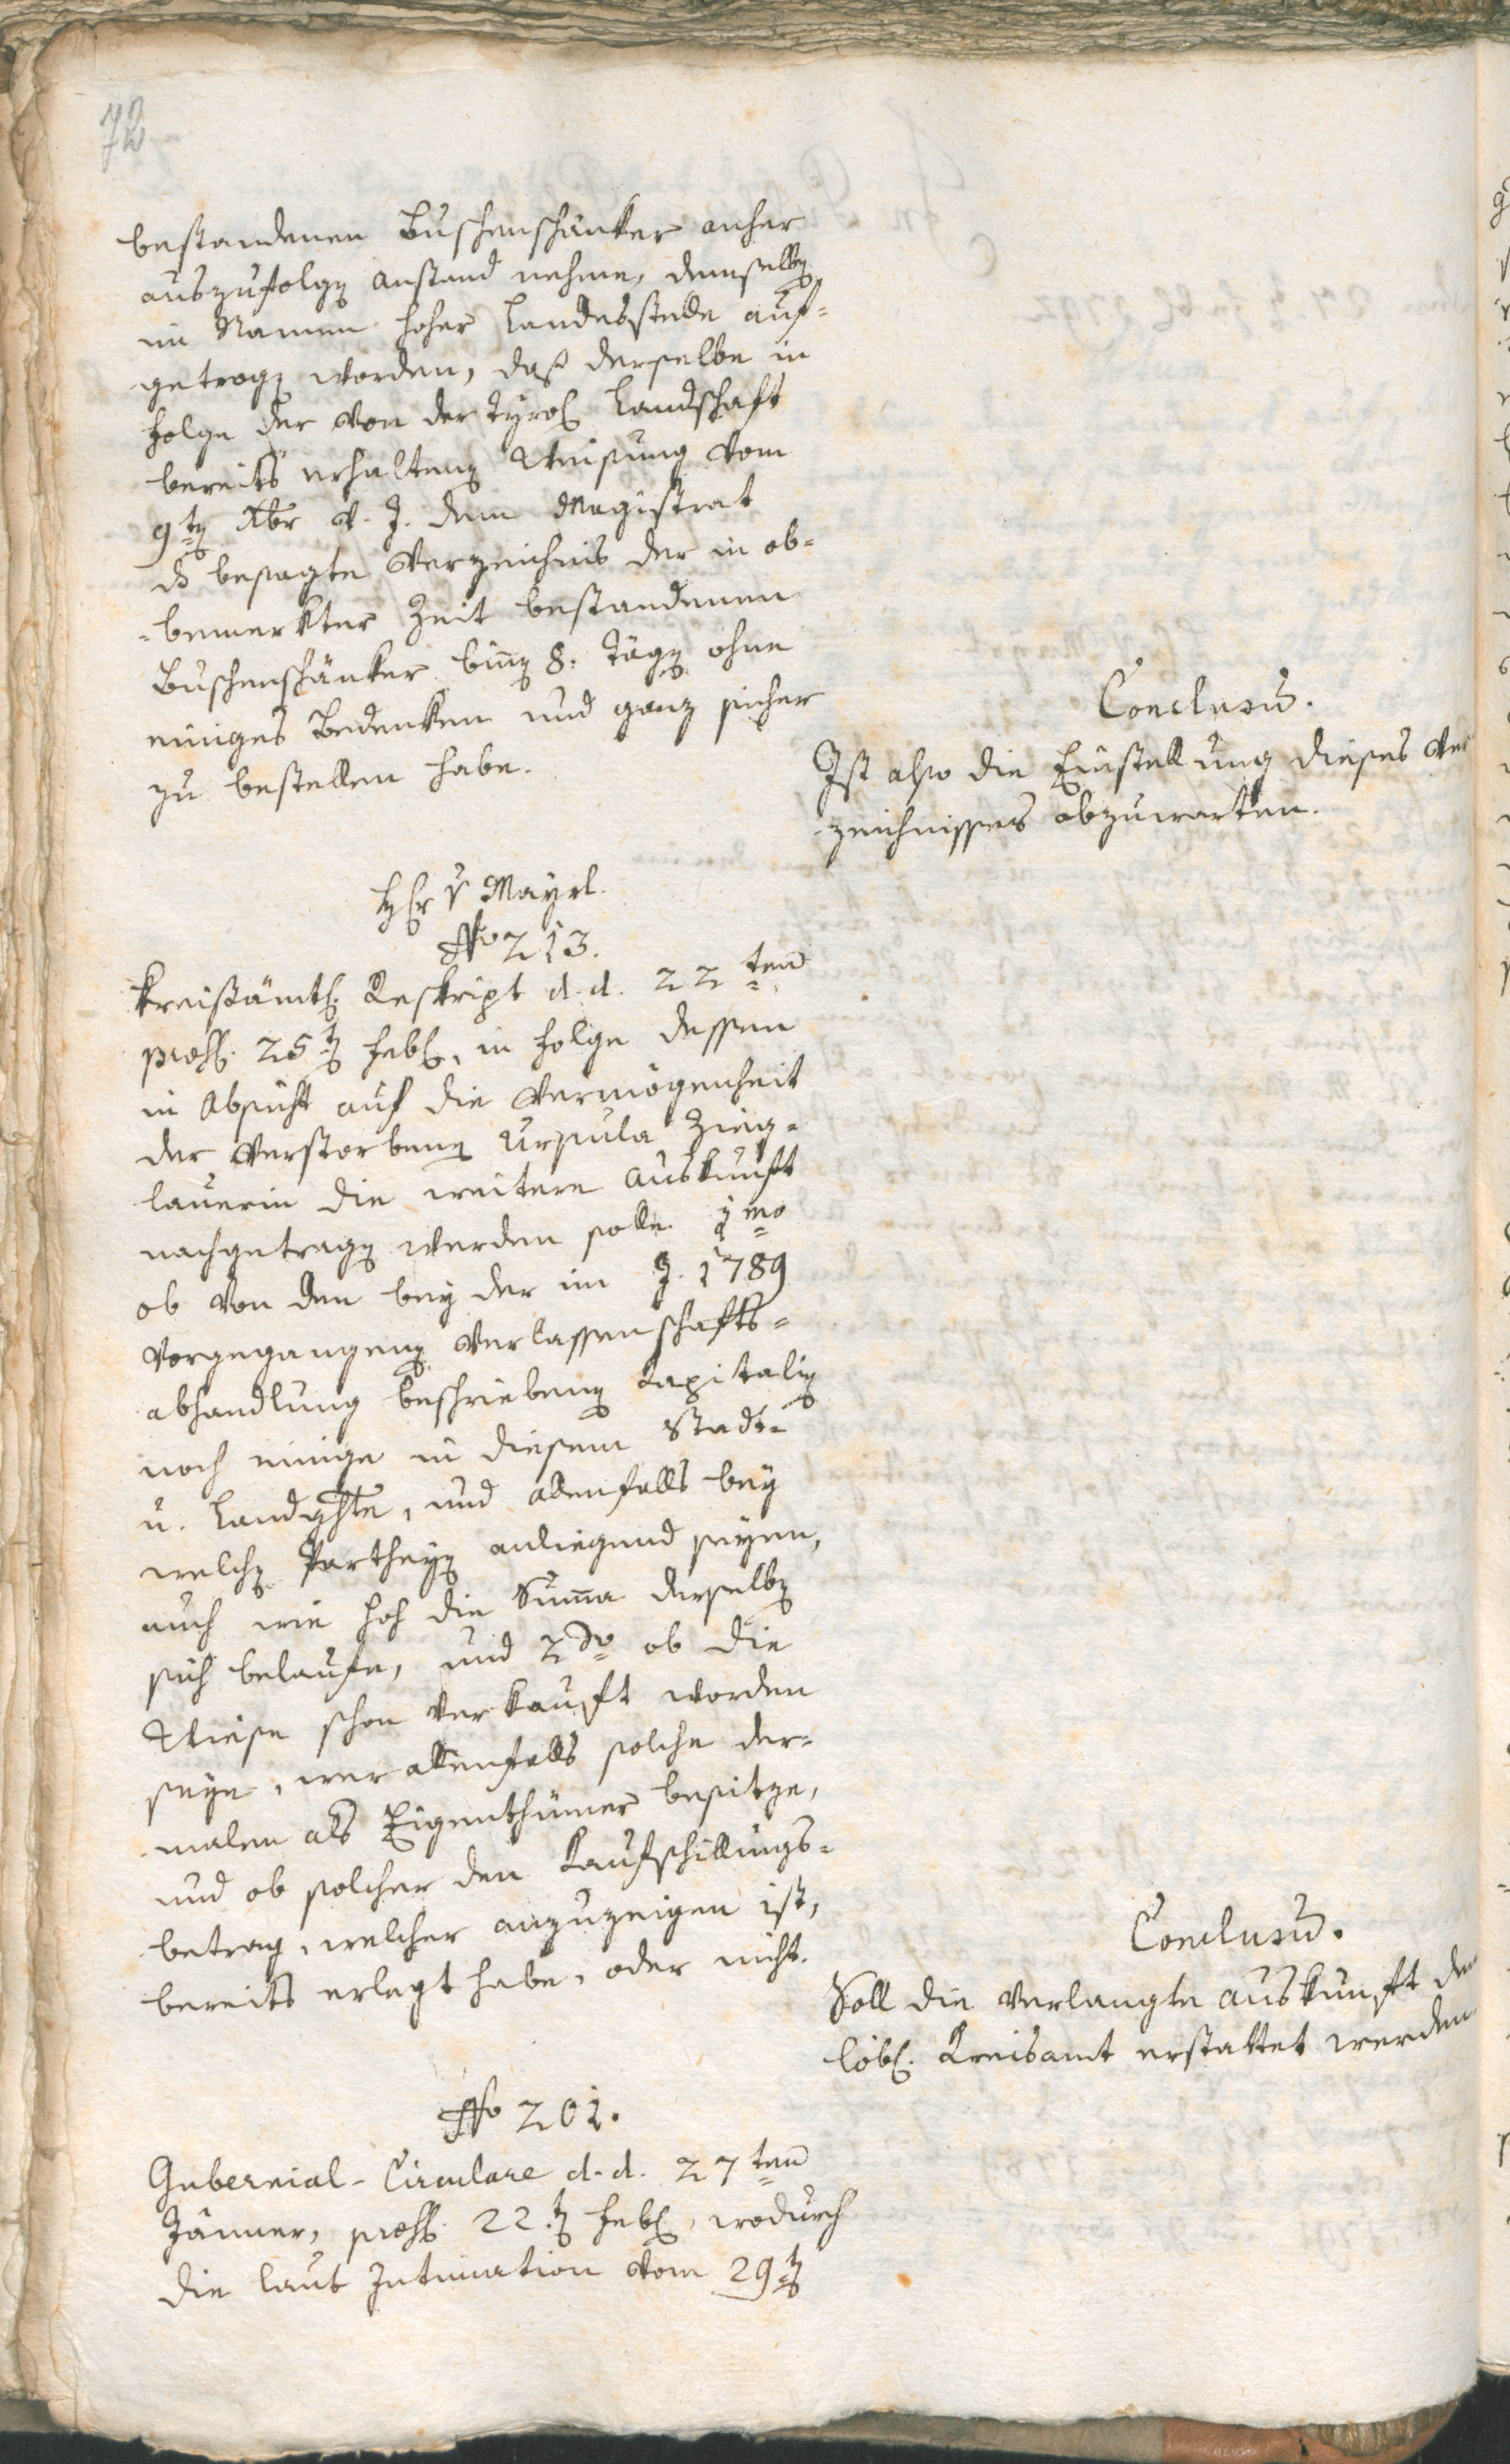 72
bestandenen Buschenschänker anher
auszufolgen anstand nehme, demselben
im Namen hoher Landesstelle auf-
getragen worden, daß derselbe in
Folge der von der tyrol. Landschaft
bereits erhaltenen Weisung vom
9ten Xbr v. J. dem Magistrat
besagte Verzeichnis der in ob-
-bemerkter Zeit bestandenen
Buschenschänker binnen 8. Tägen ohne
einiges Bedenken und ganz sicher
zu bestellen habe.
Conclusum.
Ist also die Einstellung dieses Ver
zeichnisses abzuwarten.
Hr v Mayrl.
No 213.
Kreisämtl. Reskript d. d. 22ten
praes. 25ten Feb., in Folge dessen
in Absicht auf die Vermögenheit
der verstorbenen Ursula Zieg-
lauerin die weitere Auskunft
nachgetragen werden solle. 1mo
ob von den bey der im J. 1789
vorgegangenen Verlassenschafts-
abhandlung beschriebenen Kapitalien
noch einige in diesem Stadt-
u. Landghte, und allenfalls bey
welchen Partheyen anliegend seyen,
auch wie hoch die Summa derselben
sich belaufe, und 2do ob die
Wiese schon verkauft worden
seye, wer allenfalls solche der-
malen als Eigenthümer besitze,
und ob solcher den Kaufschillings-
betrag, welcher anzuzeigen ist,
bereits erlegt habe, oder nicht.
Conclusum.
Soll die verlangte Auskunft dem
löbl. Kreisamt erstattet werden
No 201.
Gubernial-Circulare d. d. 27ten
Jänner, praes. 22.ten Feb., wodurch
die laut Intimation vom 29ten